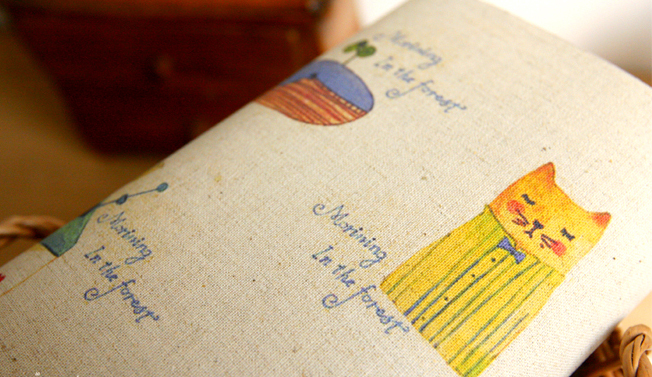 Morining
In the forest
Morining
In the forest
Morining
In the forest